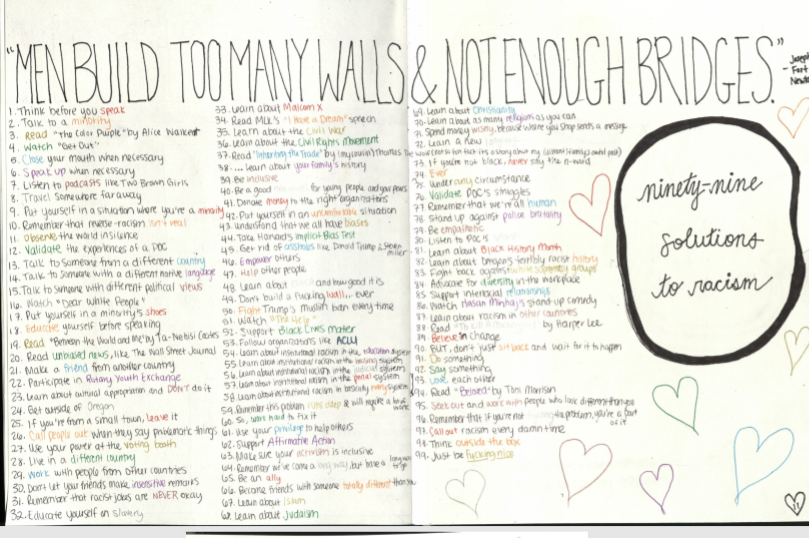 "MEN BUILD TOO MANY WALLS & NOT ENOUGH BRIDGES."
- Joseph Fort Newton
1. Think before you speak
2. Talk to a minority
3. Read "The Color Purple" by Alice Walker
4. Watch "Get Out"
5. Close your mouth when necessary
6. Speak up when necessary
7. Listen to podcasts like Two Brown Girls
8. Travel somewhere far away
9. Put yourself in a situation where you're a minority
10. Remember that reverse-racism isn't real
11. Observe the world in silence
12. Validate the experiences of a POC
13. Talk to someone from a different country
14. Talk to someone with a different native language
15. Talk to someone with different political views
16. Watch "Dear White People"
17. Put yourself in a minority's shoes
18. Educate yourself before speaking
19. Read "Between the World and Me" by Ta-Nehisi Coates
20. Read unbiased news, like The Wall Street Journal
21. Make a friend from another country
22. Participate in Rotary Youth Exchange
23. Learn about cultural appropriation and DON'T do it
24. Get outside of Oregon
25. If you're from a small town, leave it
26. Call people out when they say problematic things
27. Use your power at the voting booth
28. Live in a different country
29. Work with people from other countries
30. Don't let your friends make insensitive remarks
31. Remember that racist jokes are NEVER okay
32. Educate yourself on slavery
33. Learn about Malcom X
34. Read MLK's "I Have a Dream" speech
35. Learn about the Civil War
36. Learn about the Civil Rights Movement
37. Read "Inheriting the Trade" by (my cousin) Thomas
38. ... learn about your family's history
39. Be inclusive
40. Be a good for young people and your peers
41. Donate money to the right organizations
42. Put yourself in an uncomfortable situation
43. Understand that we all have biases
44. Take Harvard's Implicit Bias Test
45. Get rid of like Donald Trump & Stephen Miller
46. Empower others
47. Help other people
48. Learn about and how good it is
49. Don't build a fucking wall... ever
50. Fight Trump's Muslim ban every time
51. Watch "The Help"
52. Support Black Lives Matter
53. Follow organizations like ACLU
54. Learn about institutional racism in the education system
55. Learn about institutional racism in the housing system
56. Learn about institutional racism in the judicial system
57. Learn about institutional racism in the penal system
58. Learn about institutional racism in basically every system
59. Remember this problem runs deep & will require a lot of work
60. So, work hard to fix it
61. Use your privilege to help others
62. Support Affirmative Action
63. Make sure your activism is inclusive
64. Remember we've come a long way, but have a long way to go
65. Be an ally
66. Become friends with someone totally different than you
67. Learn about Islam
68. Learn about Judaism
69. Learn about Christianity
70. Learn about as many religions as you can
71. Spend money wisely, because where you shop sends a message
72. Learn a new
73. If you're not black, never say the n-word
74. Ever
75. Under any circumstance
76. Validate POC's struggles
77. Remember that we're all human
78. Stand up against police brutality
79. Be empathetic
80. Listen to POC's
81. Learn about Black History Month
82. Learn about Oregon's terribly racist history
83. Fight back against white supremacy groups
84. Advocate for diversity in the workplace
85. Support interracial relationships
86. Watch Hasan Minhaj's stand up comedy
87. Learn about racism in other countries
88. Read by Harper Lee
89. Believe in change
90. BUT, don't just sit back and wait for it to happen
91. Do something
92. Say something
93. Love each other
94. Read "Beloved" by Toni Morrison
95. Seek out and work with people who look different than you
96. Remember that if you're not the problem, you're a part of it
97. Call out racism every damn time
98. Think outside the box
99. Just be fucking nice
ninety-nine
solutions
to racism